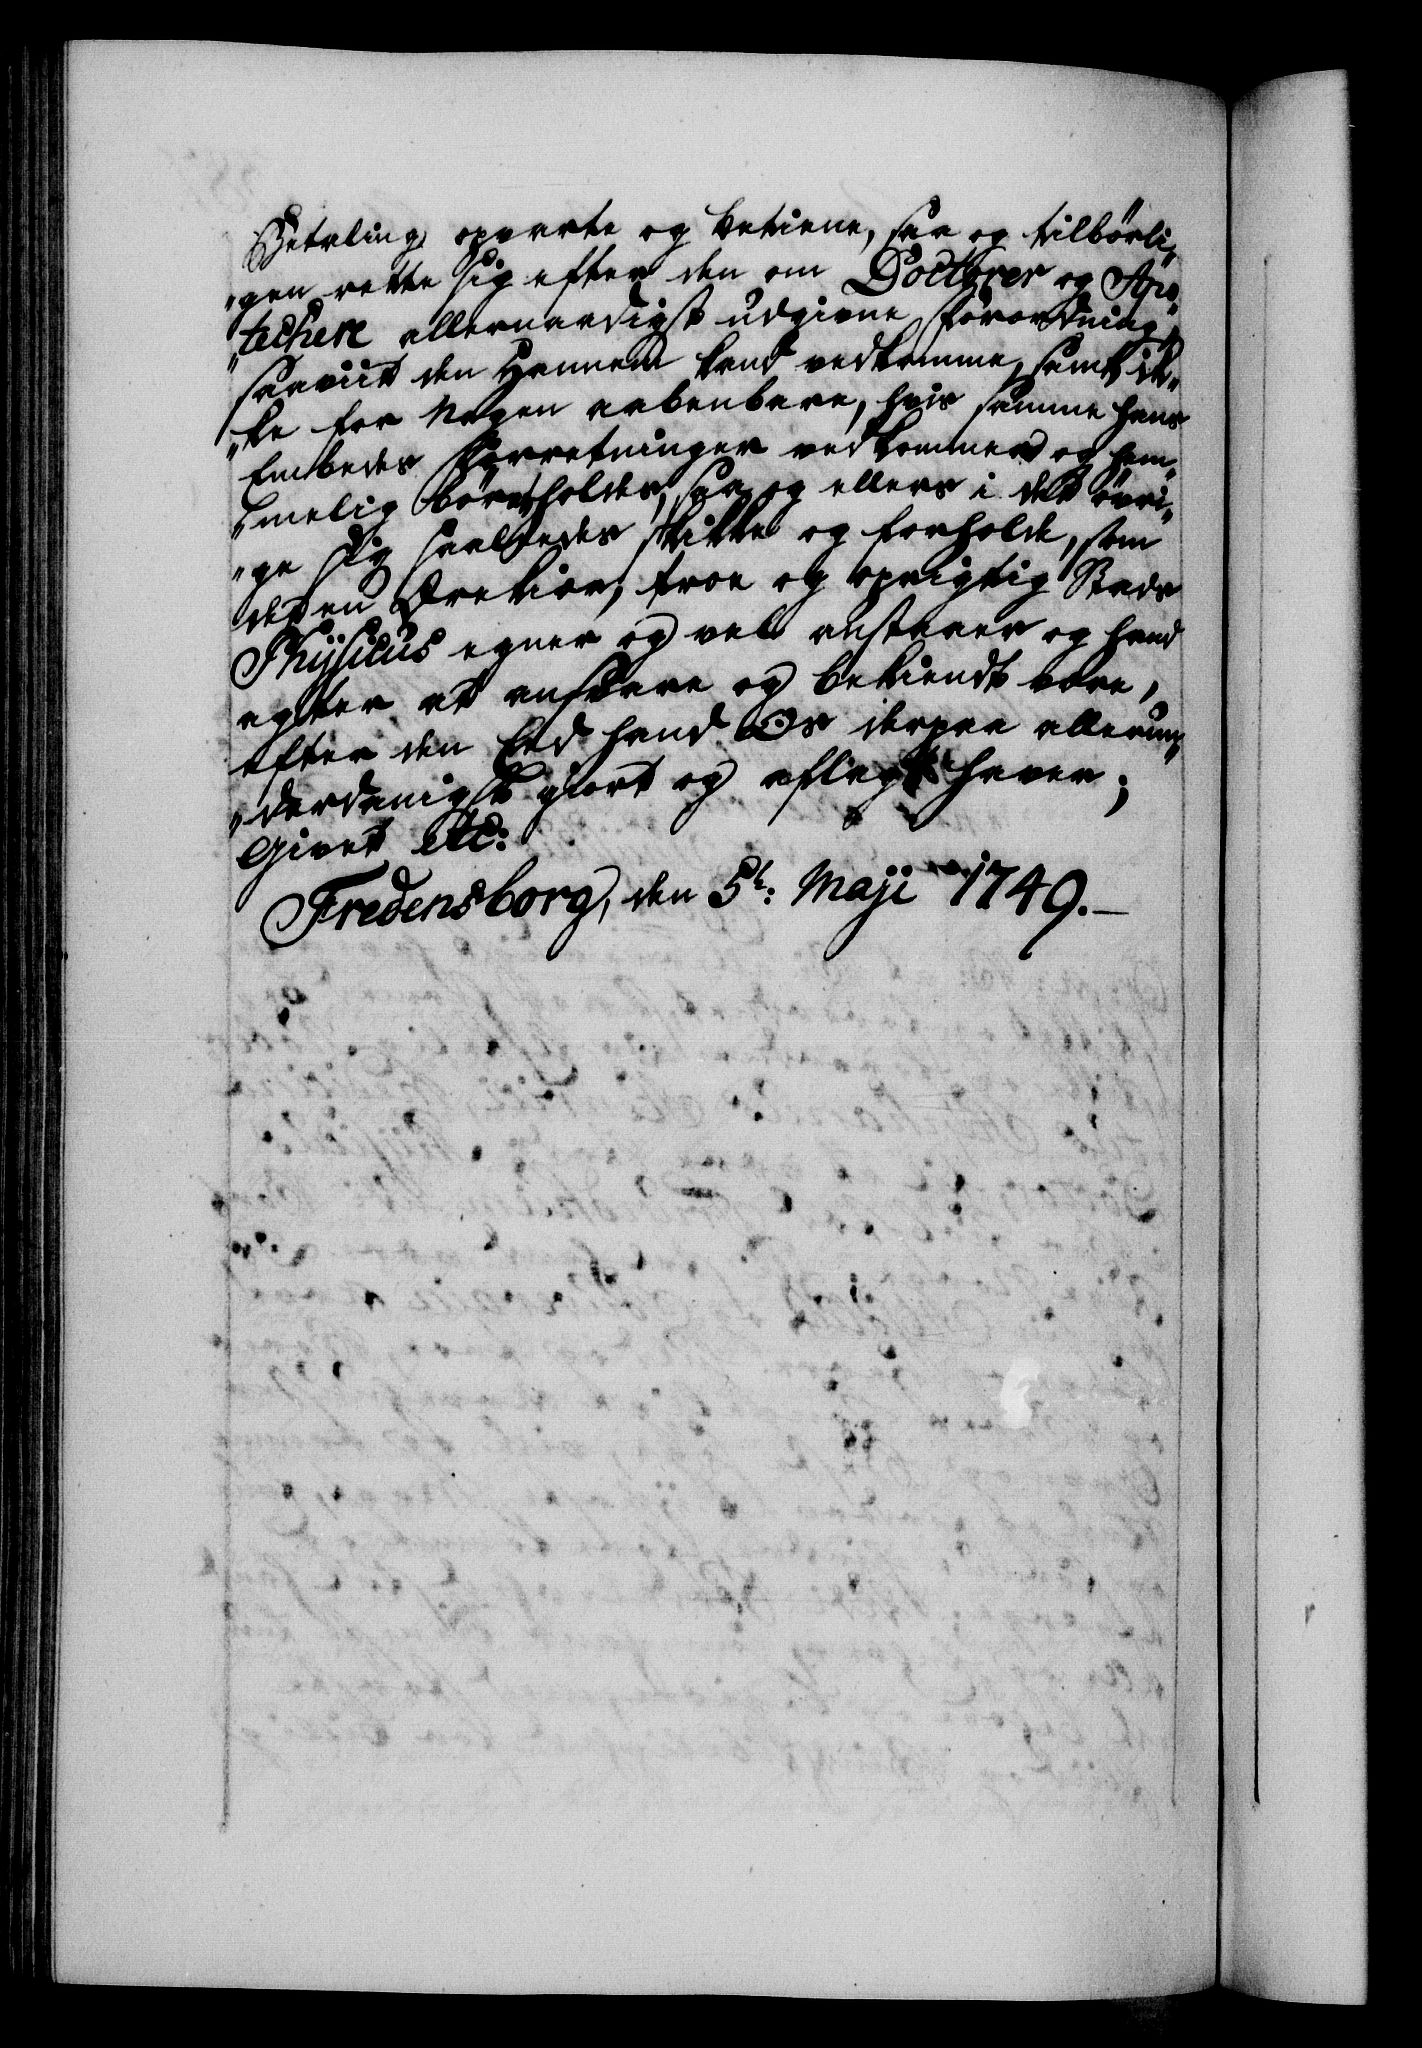 Betaling opvarte og betiene, saa og tilbörli„
„gen rette sig efter den om Doctorer og Apo„
„techere allernaadigst udgivne Forordning,
saaviit den Hannem kand vedkomme, samt ik„
„ke for Nogen aabenbare, hvis samme hans
Embedes Forretninger vedkommer og hem„
„melig bör holdes, saa og ellers i det övri„
„ge sig saaledes skikke og forholde, som
det en Ærekiær, troe og oprigtig Stads
Physicus egner og vel anstaaer og hand
agter at ansvare og bekiendt være,
efter den Eed hand Os derpaa allerun„
„derdanigst giort og aflagt haver;
Givet etc:
Fredensborg, den 5t: Maji 1749.